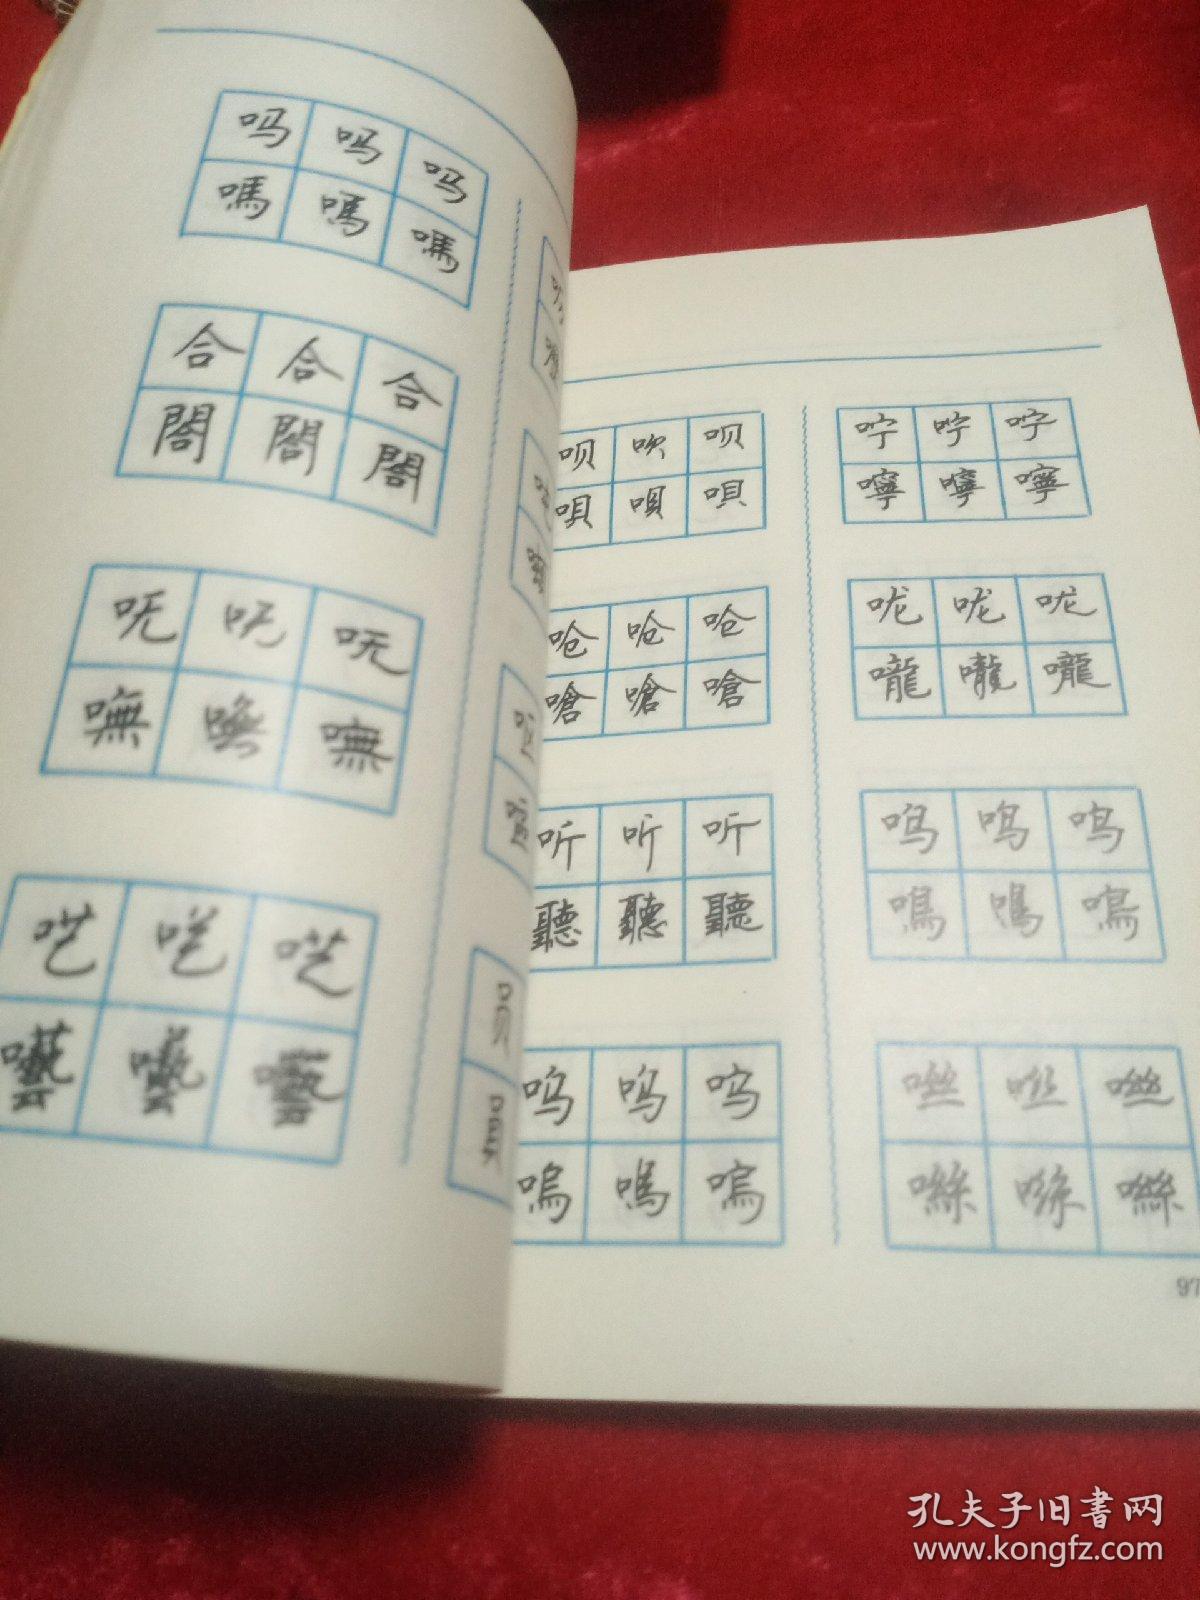 吗 吗 吗
嗎 嗎 嗎
合 合 合
閤 閤 閤
呒 呒 呒
嘸 嘸 嘸
呓 呓 呓
囈 囈 囈
呗 呗 呗
唄 唄 唄
呛 呛 呛
嗆 嗆 嗆
听 听 听
聽 聽 聽
呜 呜 呜
嗚 嗚 嗚
咛 咛 咛
嚀 嚀 嚀
咙 咙 咙
嚨 嚨 嚨
鸣 鸣 鸣
鳴 鳴 鳴
咝 咝 咝
噝 噝 噝
97
孔夫子旧书网
www.kongfz.com